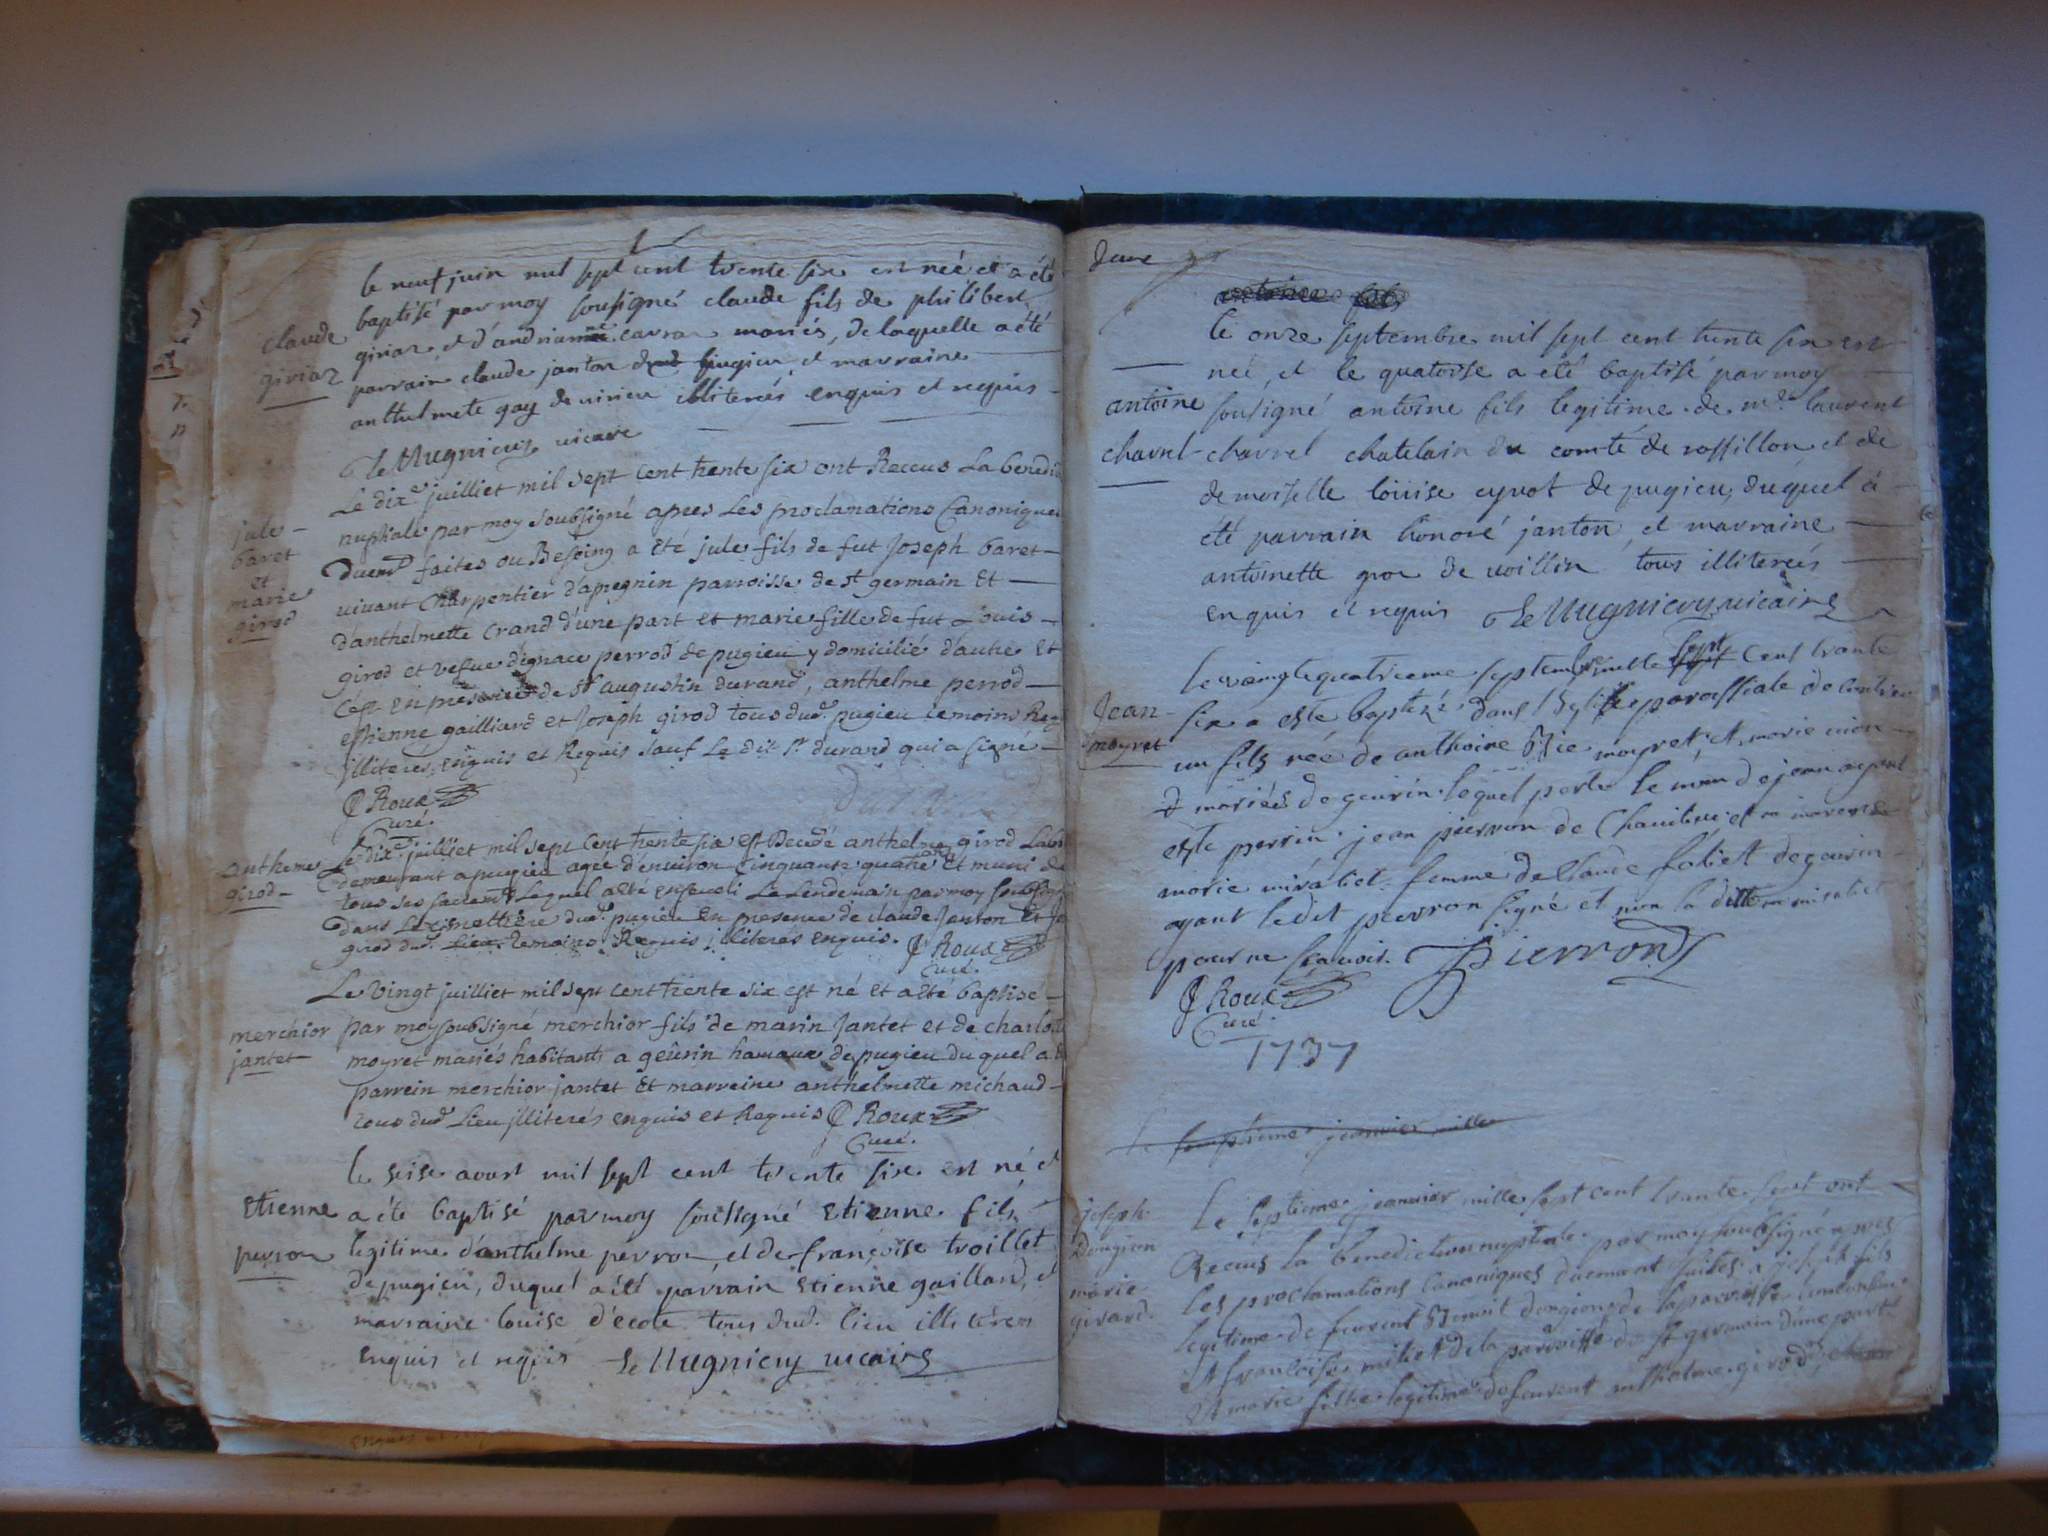 le neuf juin mil sept cent trente six est née et a été
baptisé par moy sousigné claude fils de philibert
claude
giriaz
giriaz, et d'andrianne mariés, de laquelle a été
parrain claude janton pugieu, et marraine
anthelmete gay de virieu illiterés enquis et requis
vicaire
jule
baret
et
marie
girod
Le dixe juilliet mil sept cent trente six ont Receus La benedi
nuptiale par moy soubsigné apres Les proclamations Canoniques
duemt faites ou Besoing a été jule fils de fut Joseph baret
vivant Charpentier d'apregnin parroisse de st germain Et
d'anthelmette Crand d'une part et marie fille de fut Louis
girod et vefve d'ignace perrod de pugieu y domicilié d'autre Et
C'est En presence de Sr augustin durand, anthelme perrod
estienne gailliard et Joseph girod tous dud. pugieu temoins Req
illiterés, enquis et Requis sauf Le dit Sr durand qui a signé
Roux
Curé.
antheme
girod
Le dixe juilliet mil sept Cent trente six est Decedé anthelme girod Labo
demeurant a pugieu agée d'environ Cinquante quatre ans Et muni de
tous ses sacremts Lequel a été enseveli Le Lendemain par moy soubsigné
dans Le Simettiere dud. pugieu En presence de claude Janton Et Jo
girod dud. Lieu temoins Requis illiterés enquis. Roux
Curé.
merchior
jantet
Le Vingt juilliet mil sept cent trente six est né et a été baptisé
par moy soubsigné merchior fils de marin Jantet et de charlotte
moyret mariés habitants a geûrin hamaux de pugieu du quel a é
parrein merchior jantet Et marreine anthelmette michaud
tous dud. Lieu illiterés enquis et Requis Roux
Curé.
Etienne
perrou
le seise aoust mil sept cent trente six est né, et
a été baptisé par moy sousigné Etienne fils
legitime d'anthelme perrou et de françoise troillet
de pugieu, duquel a été parrain Etienne gaillard, et
marraine louise d'ecote tous dud. lieu illiterés
enquis et requis vicaire
antoine
charvel
le onze septembre mil sept cent trente six est
née, et le quatorse a été baptisé par moy
sousigné antoine fils legitime de mr. laurent
charvel chatelain du comté de rossillon et de
demoiselle loüise cyvot de pugieu, duquel a
été parrain honoré janton, et marraine
antoinette de voillin tous illiterés
enquis et requis vicaire
Jean
moyret
Le vaingtequatrieme septembre mille sept Cent trante
six a este baptizé dans l'Eglise parossiale de
un fils née de anthoine moyret et marie
mariées de geurin lequel porte le nom de jean ayant
este perrin jean pierron de et sa
marie miraliet femme de Claude foliet de geurin
ayant ledit pierron signé et non la ditte miraliet
pour ne scavoir. Pierron
Roux
Curé
1737
Le septieme jeanvier mille
joseph
Dongion
marie
girard.
Le septieme jeanvier mille sept cent trante sept ont
Receus La benediction nuptiale par moy soubsigné apres
Les proclamations Canoniques duemant faites joseph fils
legitime de feu Benoit dongion de la parroisse
Et francoise miliet de la parroisse de St germain d'une part
Et marie fillie legitime de anthelme girod